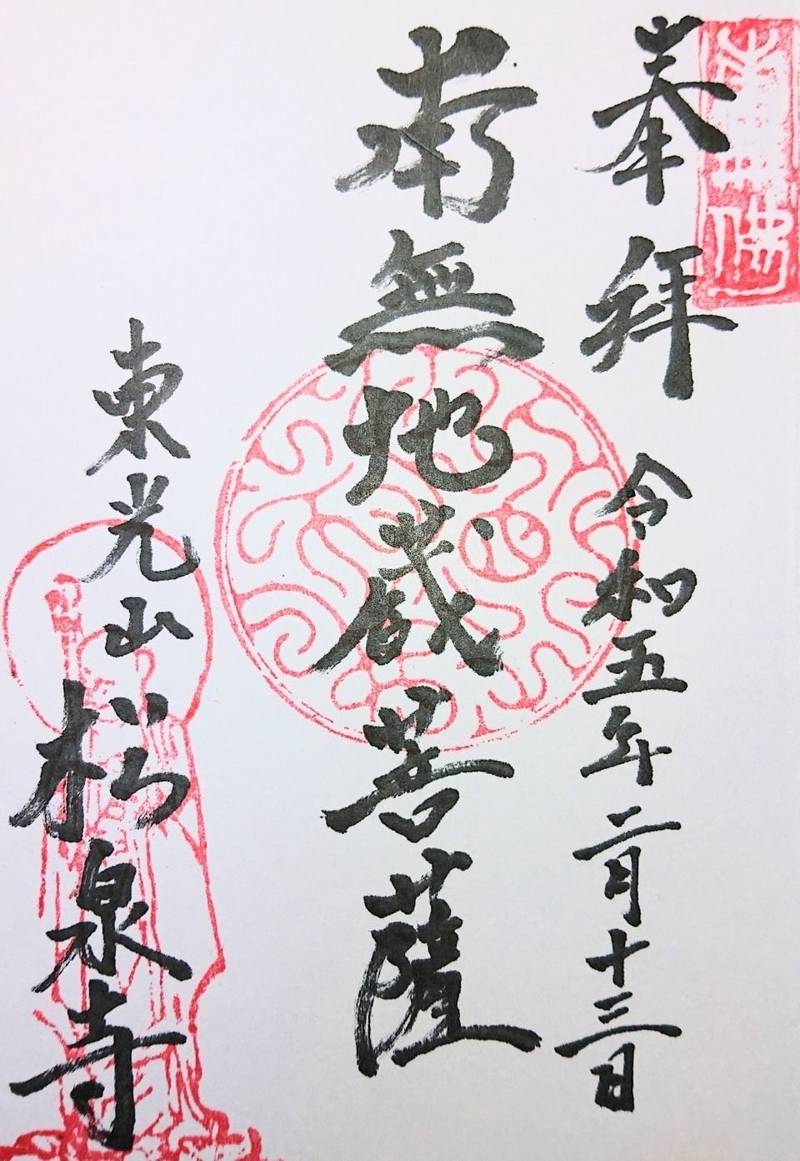 奉拝
令和五年二月十三日
南無地蔵菩薩
東光山
松泉寺
南無佛